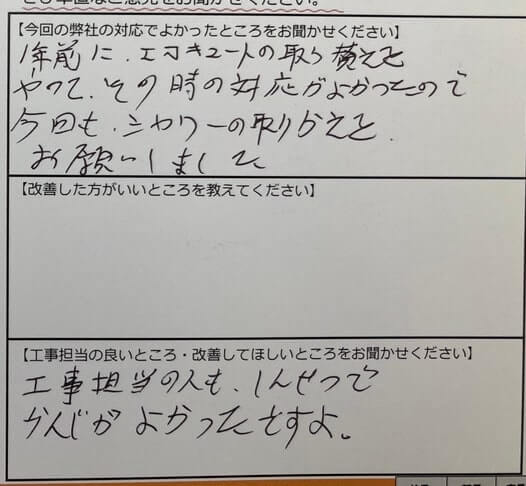 ご意見をお聞かせください。
【今回の弊社の対応でよかったところをお聞かせください】
1年前に、エコキュートの取り替えを
やって、その時の対応がよかったので
今回も、シャワーの取りかえを、
お願いしました
【改善した方がいいところを教えてください】
【工事担当の良いところ・改善してほしいところをお聞かせください】
工事担当の人も、しんせつで
かんじが よかったですよ。